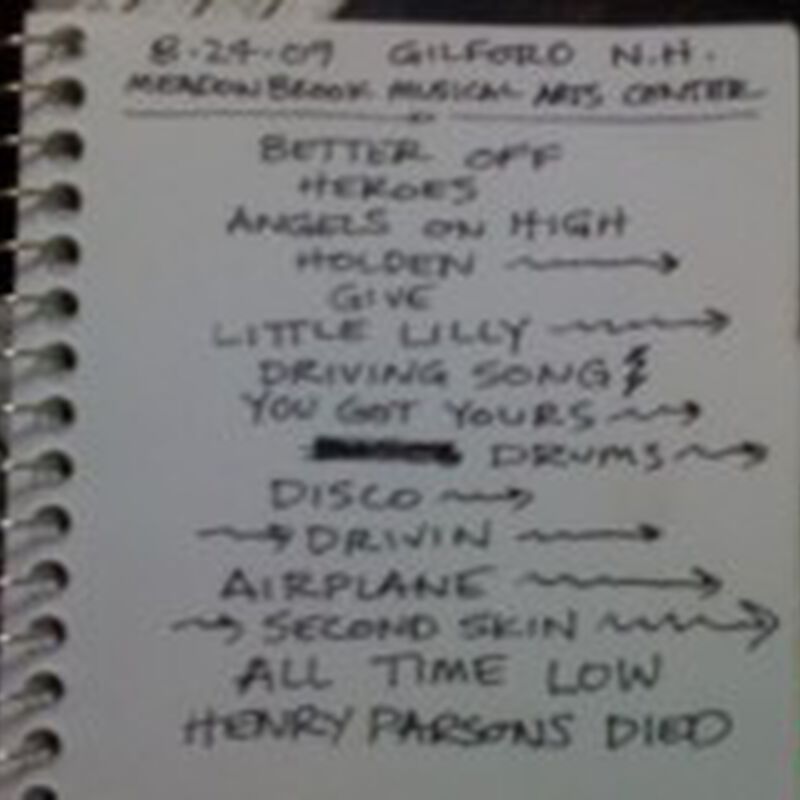 8-24-09 GILFORD N.H.
MEADOWBROOK MUSICAL ARTS CENTER
BETTER OFF
HEROES
ANGELS ON HIGH
HOLDEN →
GIVE
LITTLE LILLY →
DRIVING SONG
YOU GOT YOURS →
DRUMS →
DISCO →
→ DRIVIN →
AIRPLANE →
→ SECOND SKIN →
ALL TIME LOW
HENRY PARSONS DIED